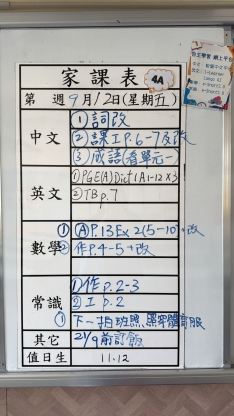 家課表
4A
第 週 9月12日(星期五)
中文
①詞改
②課工P.6-7及改
③成語看單元一
英文
①PGE(A)Dict1A1-12×3
②TB p.7
數學
①(A)P.13Ex2(5-10)+改
②作P.4-5+改
常識
①作p.2-3
②工p.2
①下一拍班照,照穿體育服
其它
21/9前訂飯
值日生
11.12